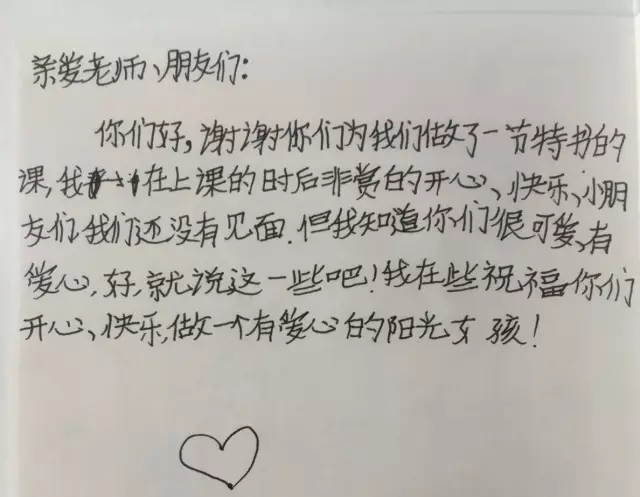 亲爱老师、朋友们:
你们好,谢谢你们为我们做了一节特书的
课,我在上课的时后非赏的开心、快乐、小朋
友们我们还没有见面.但我知道你们很可爱,有
爱心,好,就说这一些吧!我在些祝福你们
开心、快乐,做一个有爱心的阳光女孩!